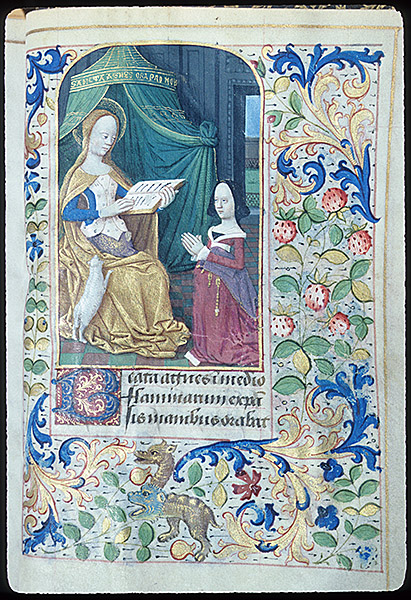 SANCTA AGNES ORA PRO NOB
Beata agnes i medio
flammarum expa
sis manibus orabat